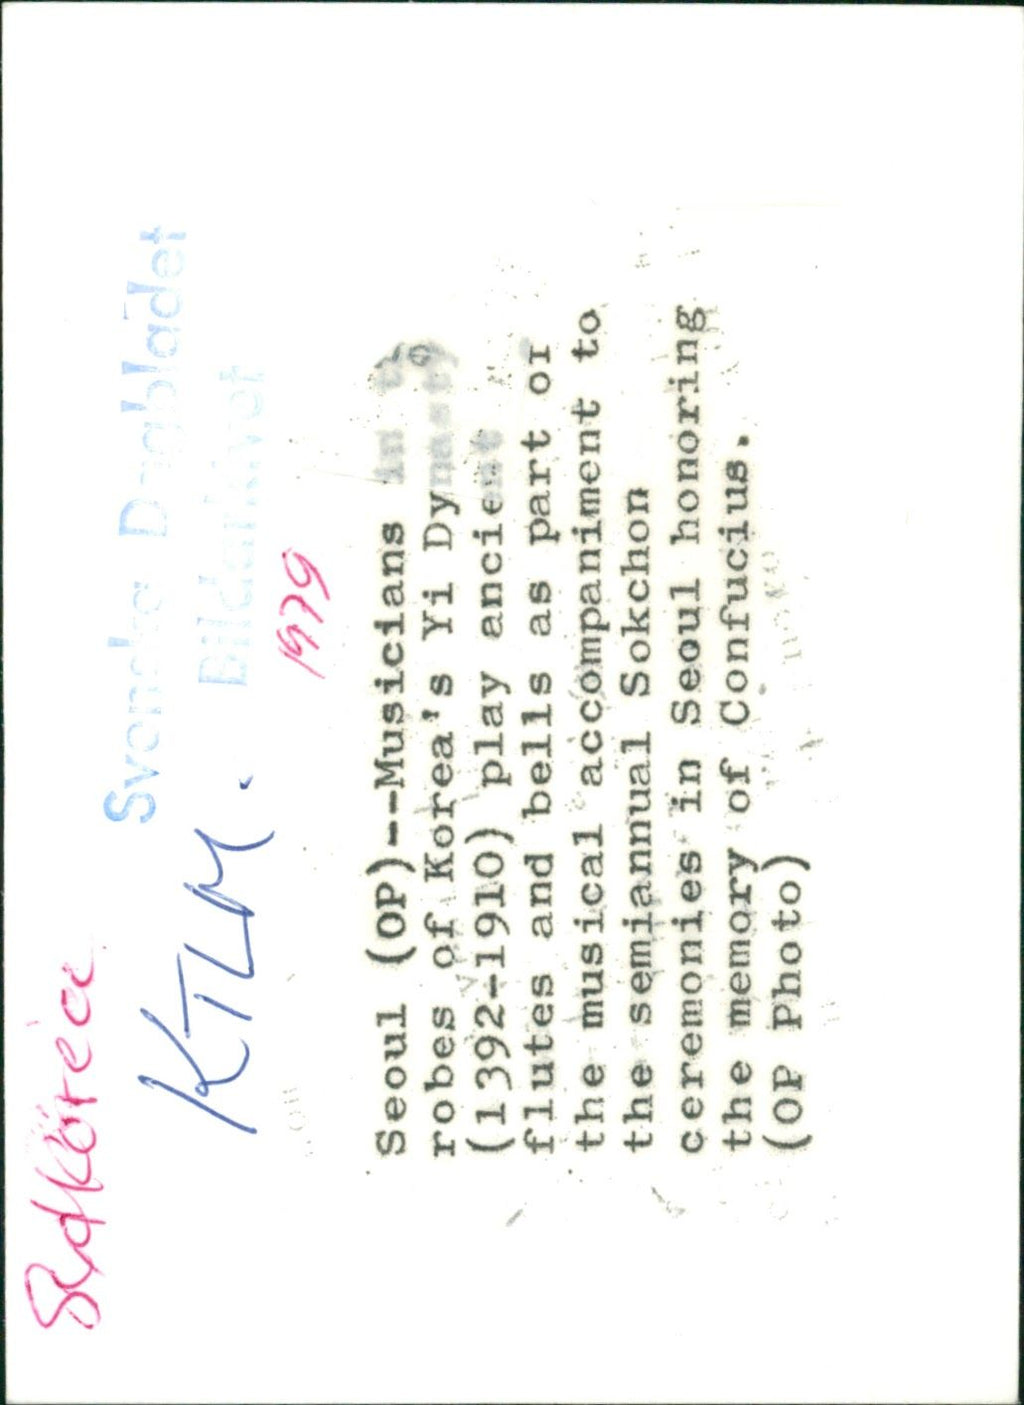 Sydkorea
KTLM.
Svenska Dagbladet
Bildarkivet
1979
Seoul (OP)--Musicians in
robes of Korea's Yi Dynasty
(1392-1910) play ancient
flutes and bells as part of
the musical accompaniment to
the semiannual Sokchon
ceremonies in Seoul honoring
the memory of Confucius.
(OP Photo)